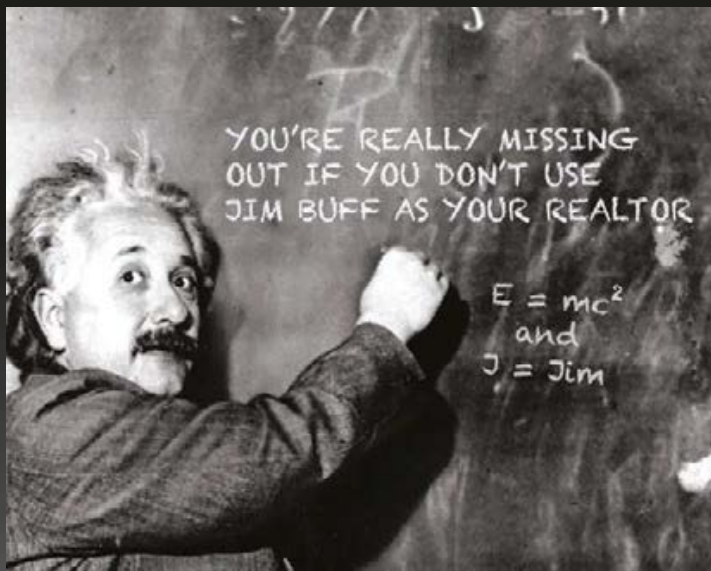 YOU'RE REALLY MISSING
OUT IF YOU DON'T USE
JIM BUFF AS YOUR REALTOR
E = mc²
and
J = Jim